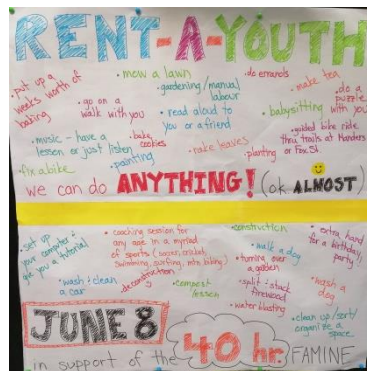 RENT-A-YOUTH
• put up a
weeks worth of
baking
• mow a lawn
• gardening/manual
labour
• do errands
• make tea
• do a
puzzle
with you
• go on a
walk with you
• read aloud to
you or a friend
• babysitting
• music - have a
lesson or just listen
• bake
cookies
• rake leaves
• guided bike ride
thru trails at Handers
or Fox St
• fix a bike
• painting
• planting
we can do ANYTHING! (ok ALMOST)
• set up
your computer +
give you a tutorial
• coaching session for
any age in a myriad
of sports (soccer, cricket,
swimming, surfing, mtn biking)
• construction
• extra hand
for a birthday
party
• walk a dog
• turning over
a garden
• wash + clean
a car
deconstruction
• compost
lesson
• split + stack
firewood
• wash a
dog
• water blasting
• clean up/sort/
organize a
space
JUNE 8
in support of the 40 hr FAMINE